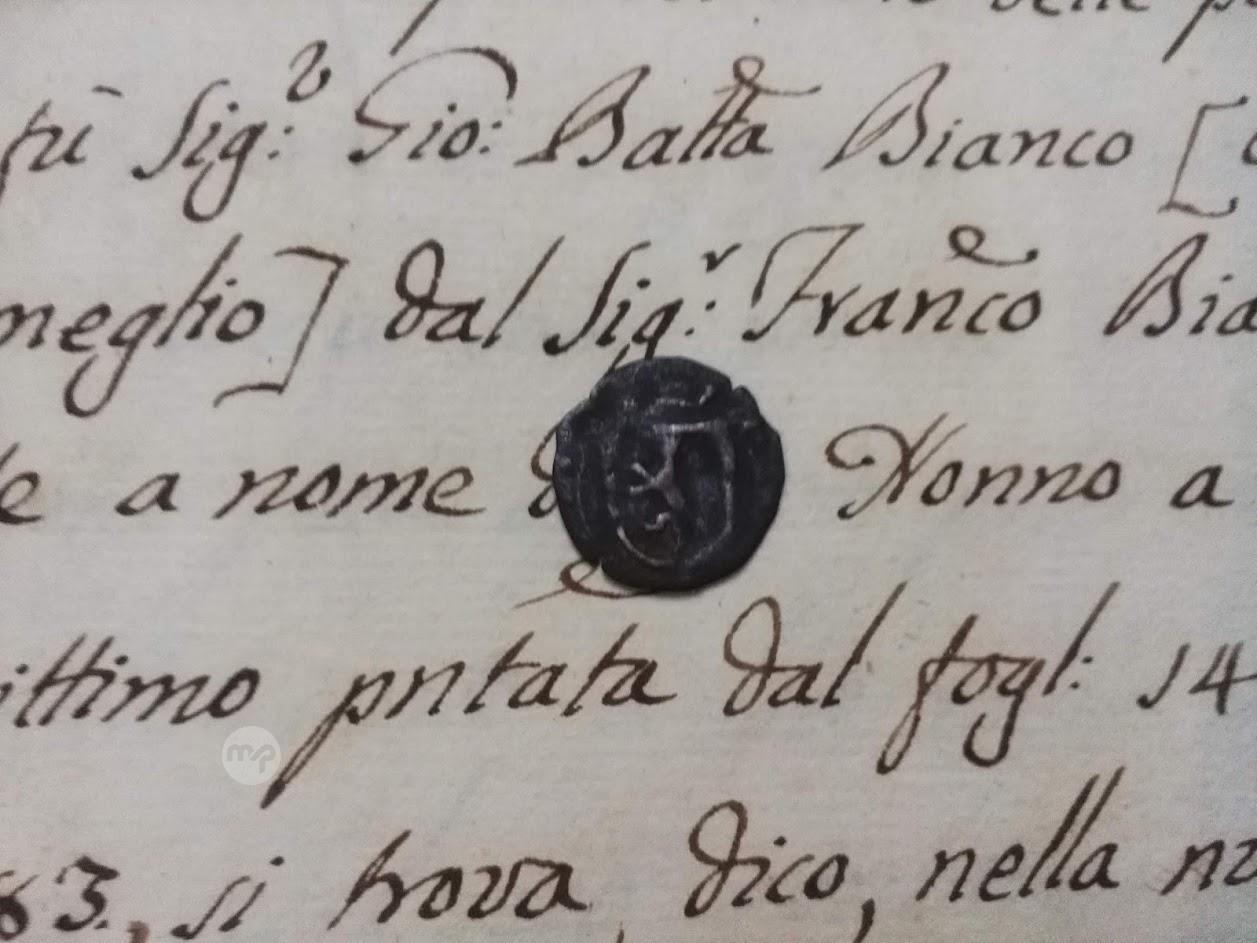 Sig:ʳ Gio: Batta Bianco [
meglio] dal Sig:ʳ Franco
a nome Nonno a
pntata dal fogl: 14
83., si trova, dico, nella
mp